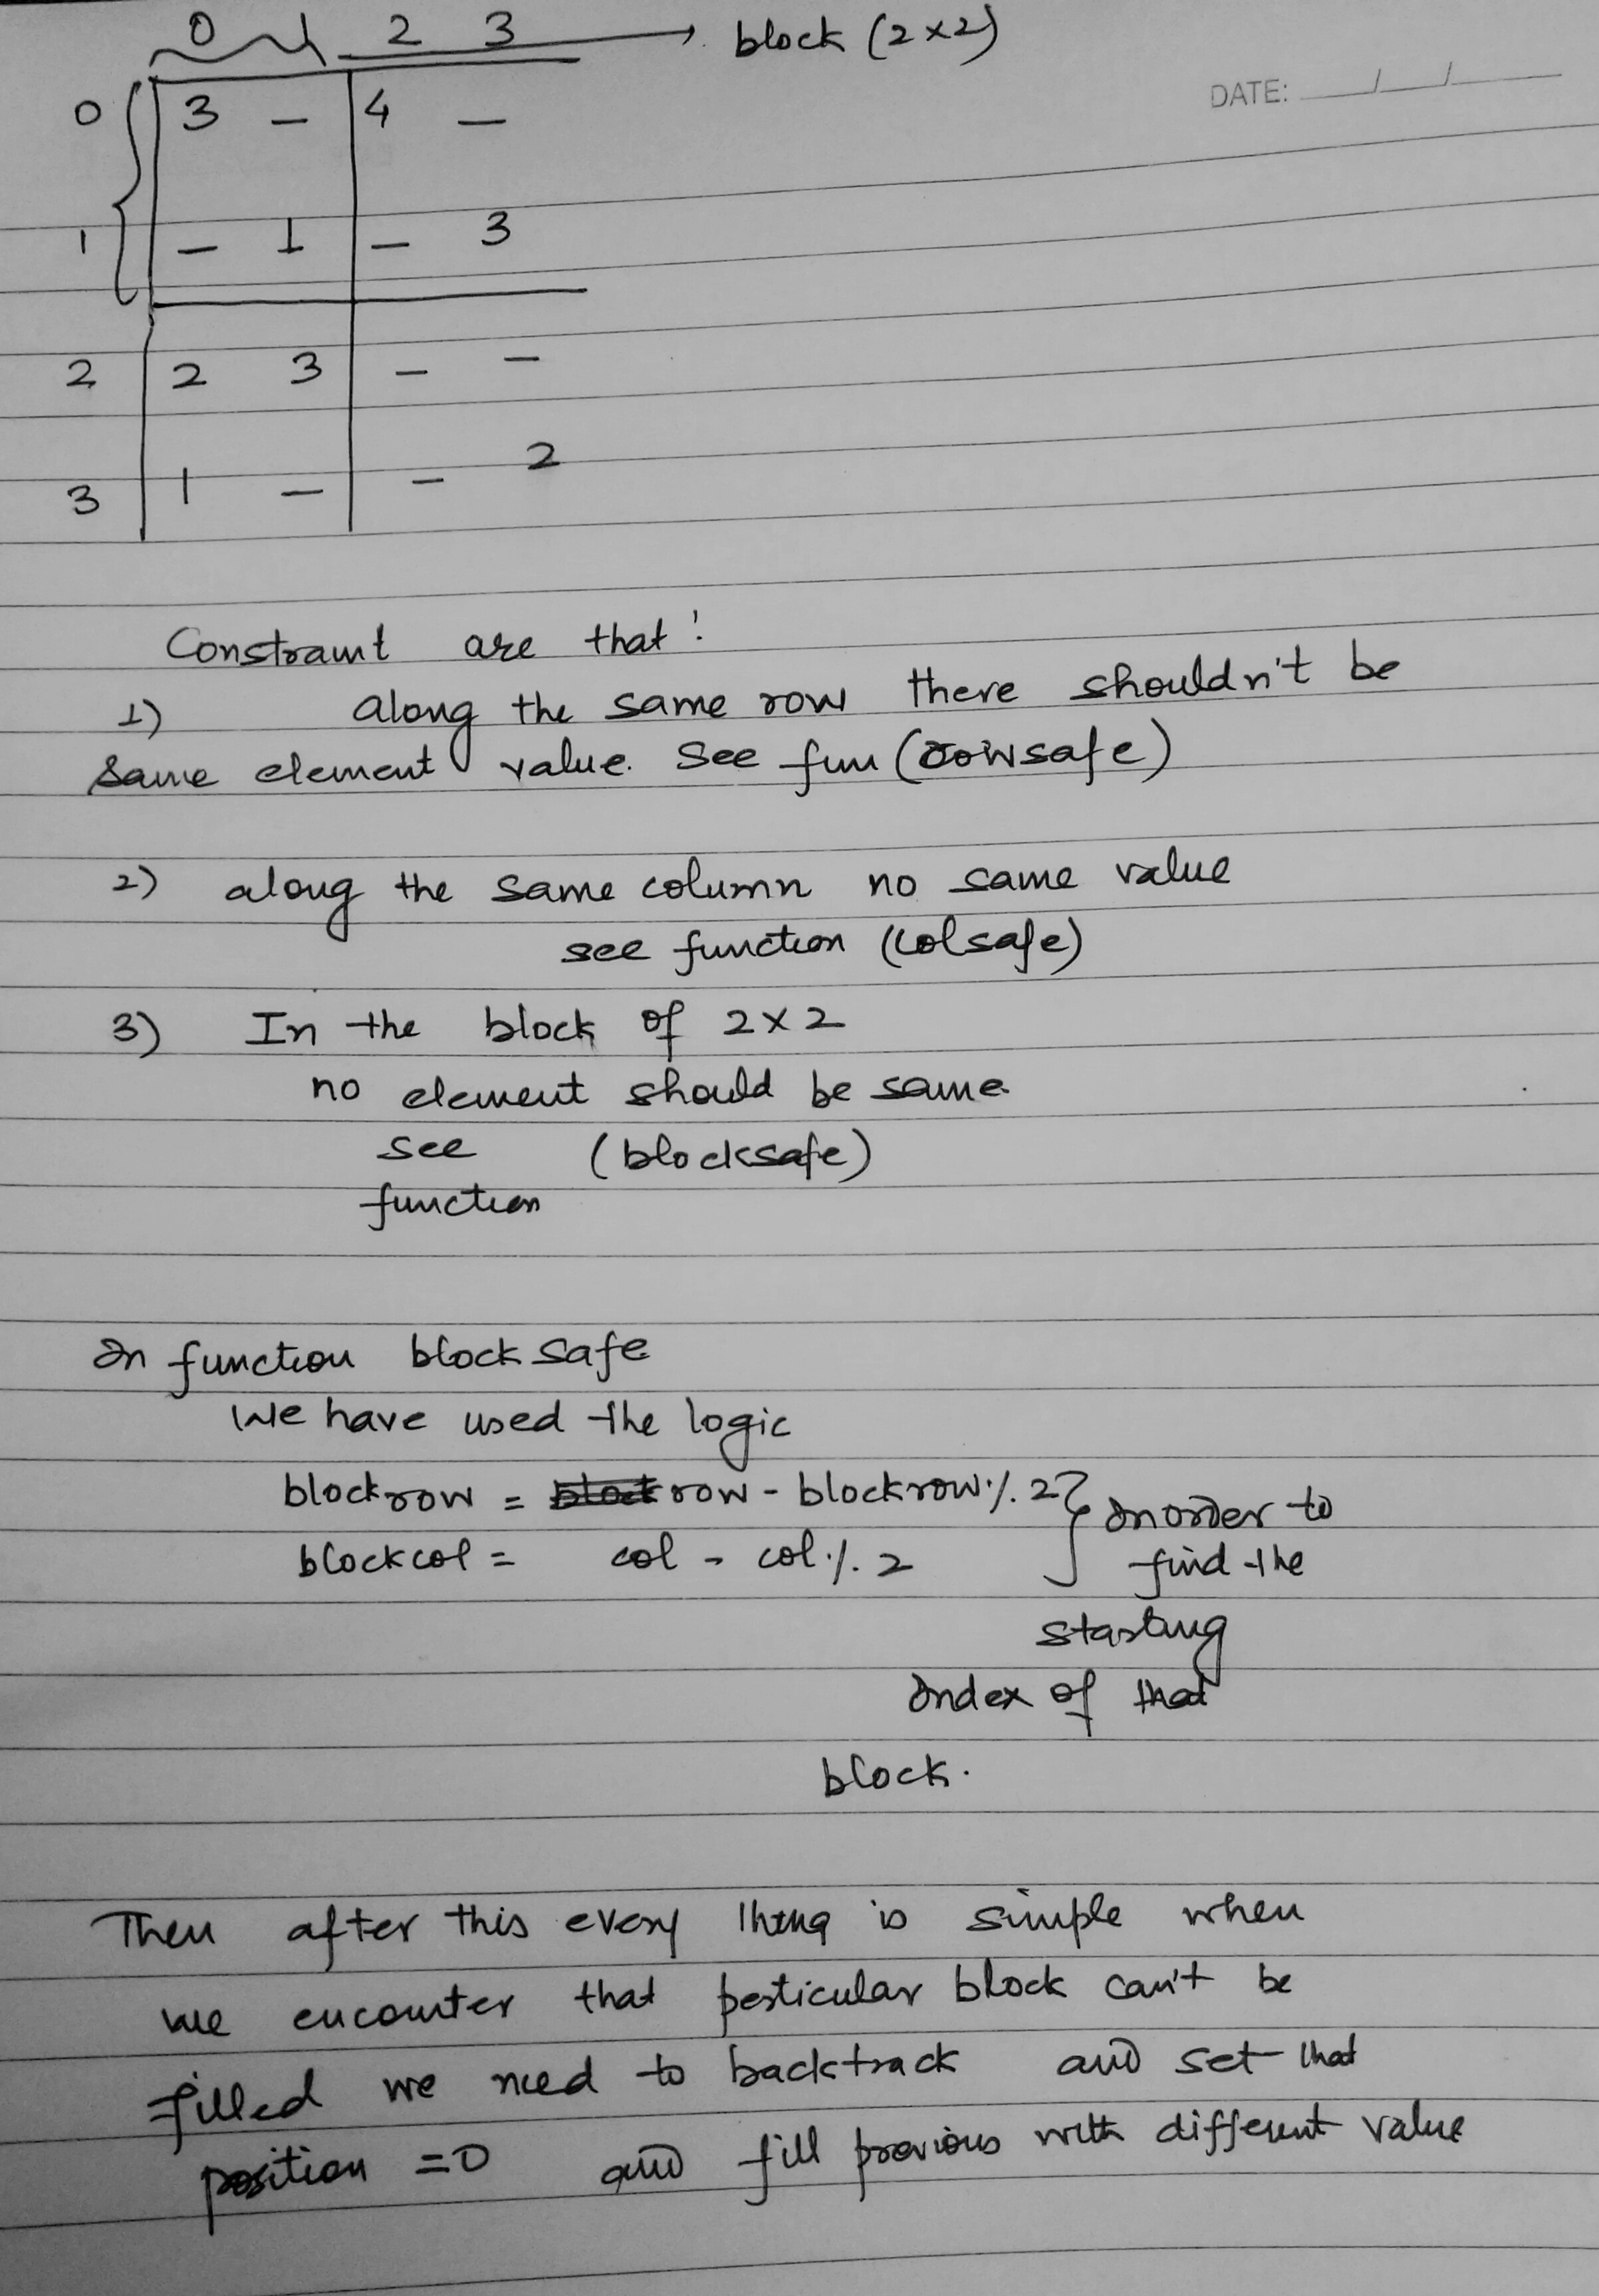 0 1 2 3 → block (2×2)
DATE: __/__/__
0 3 – 4 –
1 – 1 – 3
2 2 3 – –
3 1 – – 2
Constraint are that :
1) along the same row there shouldn't be
same element value. See fun (rowsafe)
2) along the same column no same value
see function (colsafe)
3) In the block of 2×2
no element should be same.
see (blocksafe)
function
In function block safe
We have used the logic
blockrow = row - blockrow % 2 } In order to
blockcol = col - col % 2 find the
starting
Index of that
block.
Then after this every thing is simple when
we encounter that perticular block can't be
filled we need to backtrack and set that
position = 0 and fill previous with different value